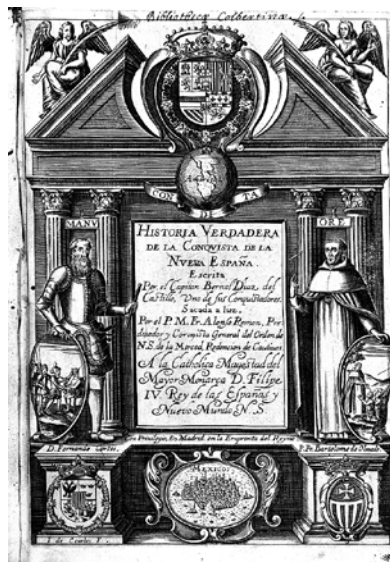 Bibliothecæ Colbertinæ
America
CON DI TA
MANV
ORE
HISTORIA VERDADERA
DE LA CONQVISTA DE LA
NVEVA ESPAÑA.
Escrita
Por el Capitan Bernal Diaz del
Castillo, Vno de sus Conquistadores.
Sacada a luz,
Por el P. M. Fr. Alonso Remon, Pre
dicador y Coronista General del Orden de
N. S. de la Merced, Redencion de Cautiuos.
A la Catholica Magestad del
Mayor Monarca D. Filipe
IV. Rey de las Españas y
Nuevo Mundo N. S.
Con Privilegio, En Madrid, en la Emprenta del Reyno
D. Fernando Cortes.
P. Fr. Bartolome de Olmedo
MEXICO